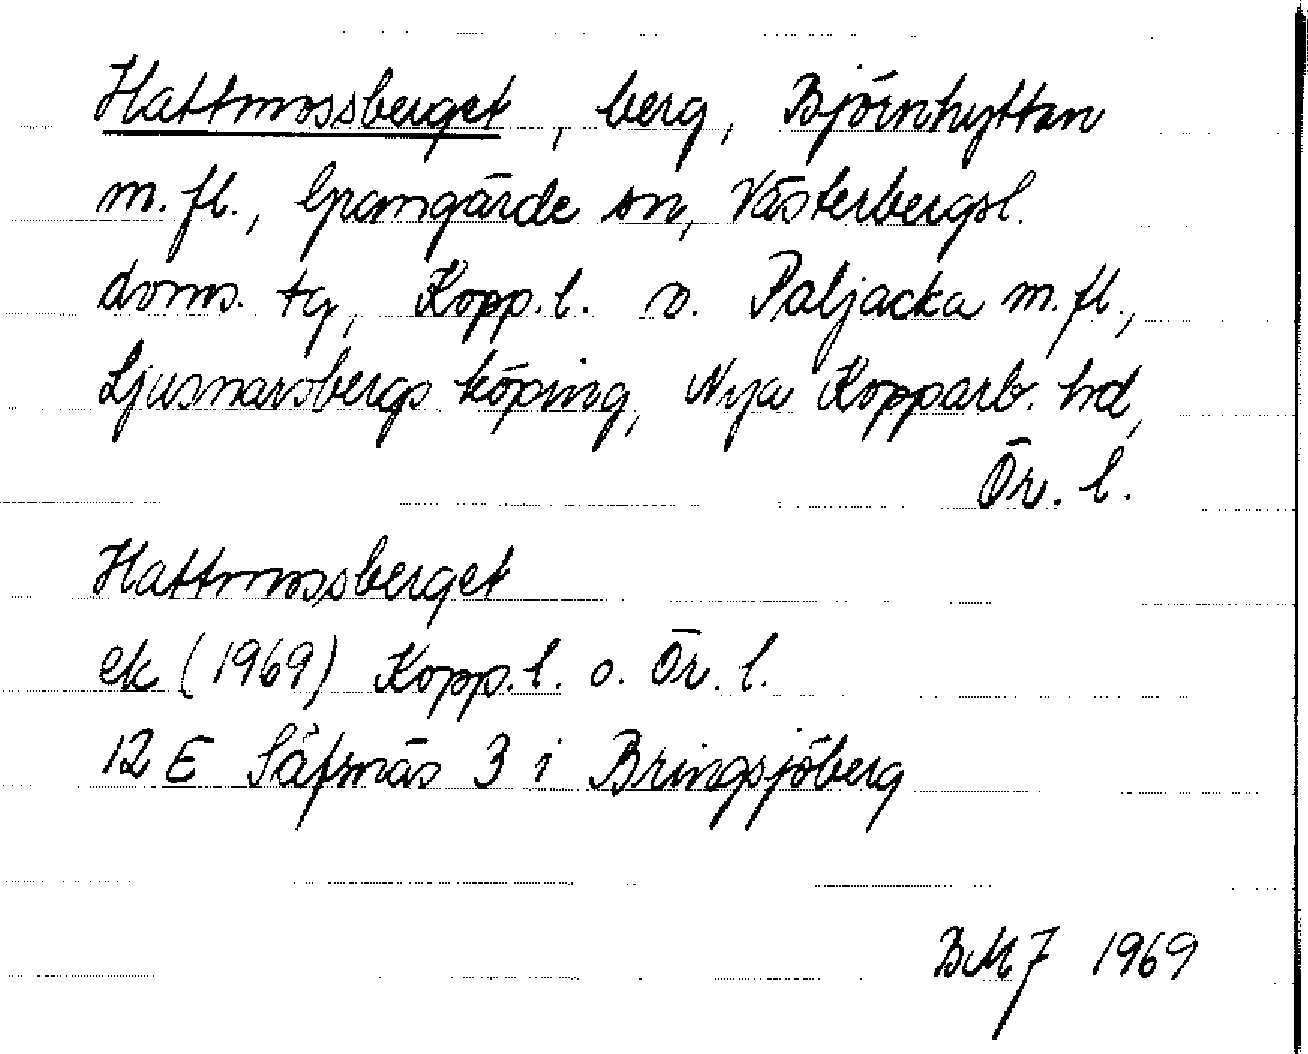 Hattmossberget, berg, Björnhyttan
m.fl., Grangärde sn, Västerbergsl.
doms. tg, Kopp.l. o. Paljacka m.fl.,
Ljusnarsbergs köping, Nya Kopparb. hd,
Ör. l.
Hattmossberget
ek (1969) Kopp.l. o. Ör. l.
12 E Säfsnäs 3 i Bringsjöberg
BMJ 1969